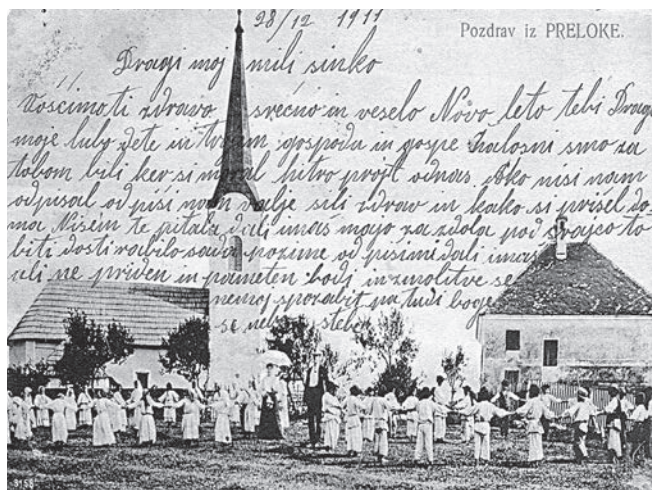 28/12 1911
Pozdrav iz PRELOKE.
Dragi moj mili sinko
Voščimoti zdravo srečno in veselo Novo leto tebi Dragi
moje lubo dete in tvojim gospodu in gospe žalosni smo za
tobom bili ker si moral hitro projt odnas Ako nisi nam
odpisal odpiši nam valje sili zdrav in kako si prišel do-
ma Nisem te pitala dali imaš majo za zdola pod srajco to
biti dosti rabilo sada pozime odpišimi dali imaš
ali ne priden in pameten bodi inzmolitve se
nemoj spozabit pa tudi boge
se nebo stebe
3158